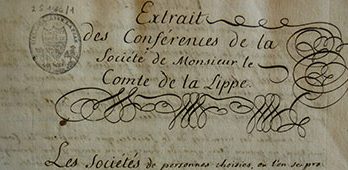 2 S 146/1
Extrait
des Conférences de la
Société de Monsieur le
Comte de la Lippe.
Les Sociétés de personnes choisies, où l'on se pro